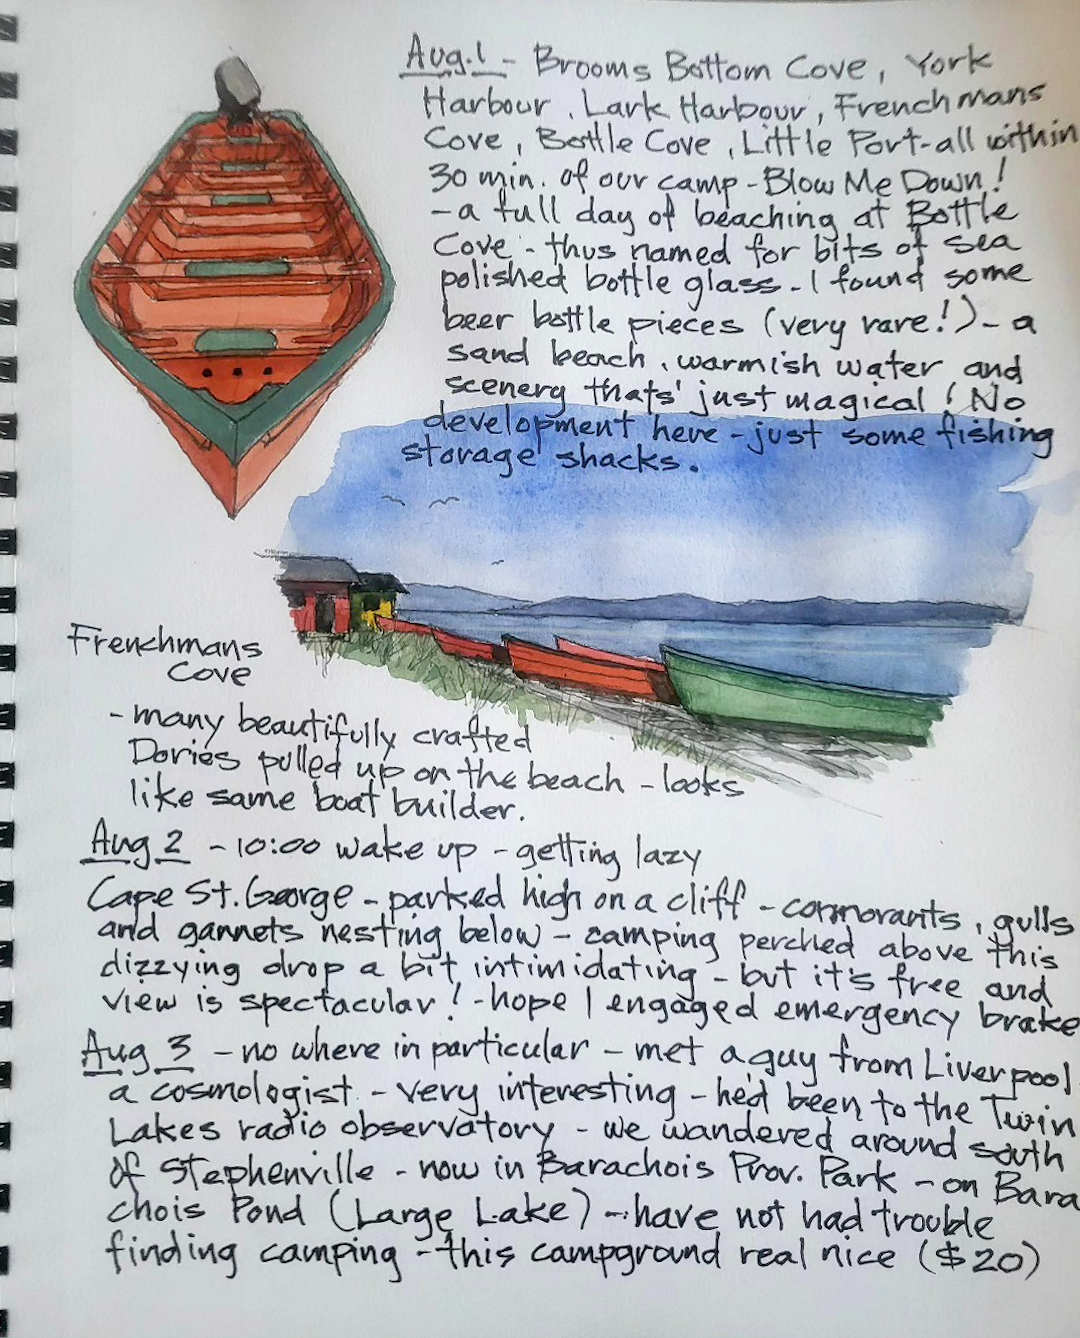 Aug. 1 - Brooms Bottom Cove, York
Harbour, Lark Harbour, Frenchmans
Cove, Bottle Cove, Little Port - all within
30 min. of our camp - Blow Me Down!
- a full day of beaching at Bottle
Cove - thus named for bits of sea
polished bottle glass - I found some
beer bottle pieces (very rare!) - a
sand beach, warmish water and
scenery thats' just magical! No
development here - just some fishing
storage shacks.
Frenchmans
Cove
- many beautifully crafted
Dories pulled up on the beach - looks
like same boat builder.
Aug 2 - 10:00 wake up - getting lazy
Cape St. George - parked high on a cliff - cormorants, gulls
and gannets nesting below - camping perched above this
dizzying drop a bit intimidating - but it's free and
view is spectacular! - hope I engaged emergency brake
Aug 3 - no where in particular - met a guy from Liverpool
a cosmologist - very interesting - he'd been to the Twin
Lakes radio observatory - we wandered around south
of Stephenville - now in Barachois Prov. Park - on Bara
chois Pond (Large Lake) - have not had trouble
finding camping - this campground real nice ($20)